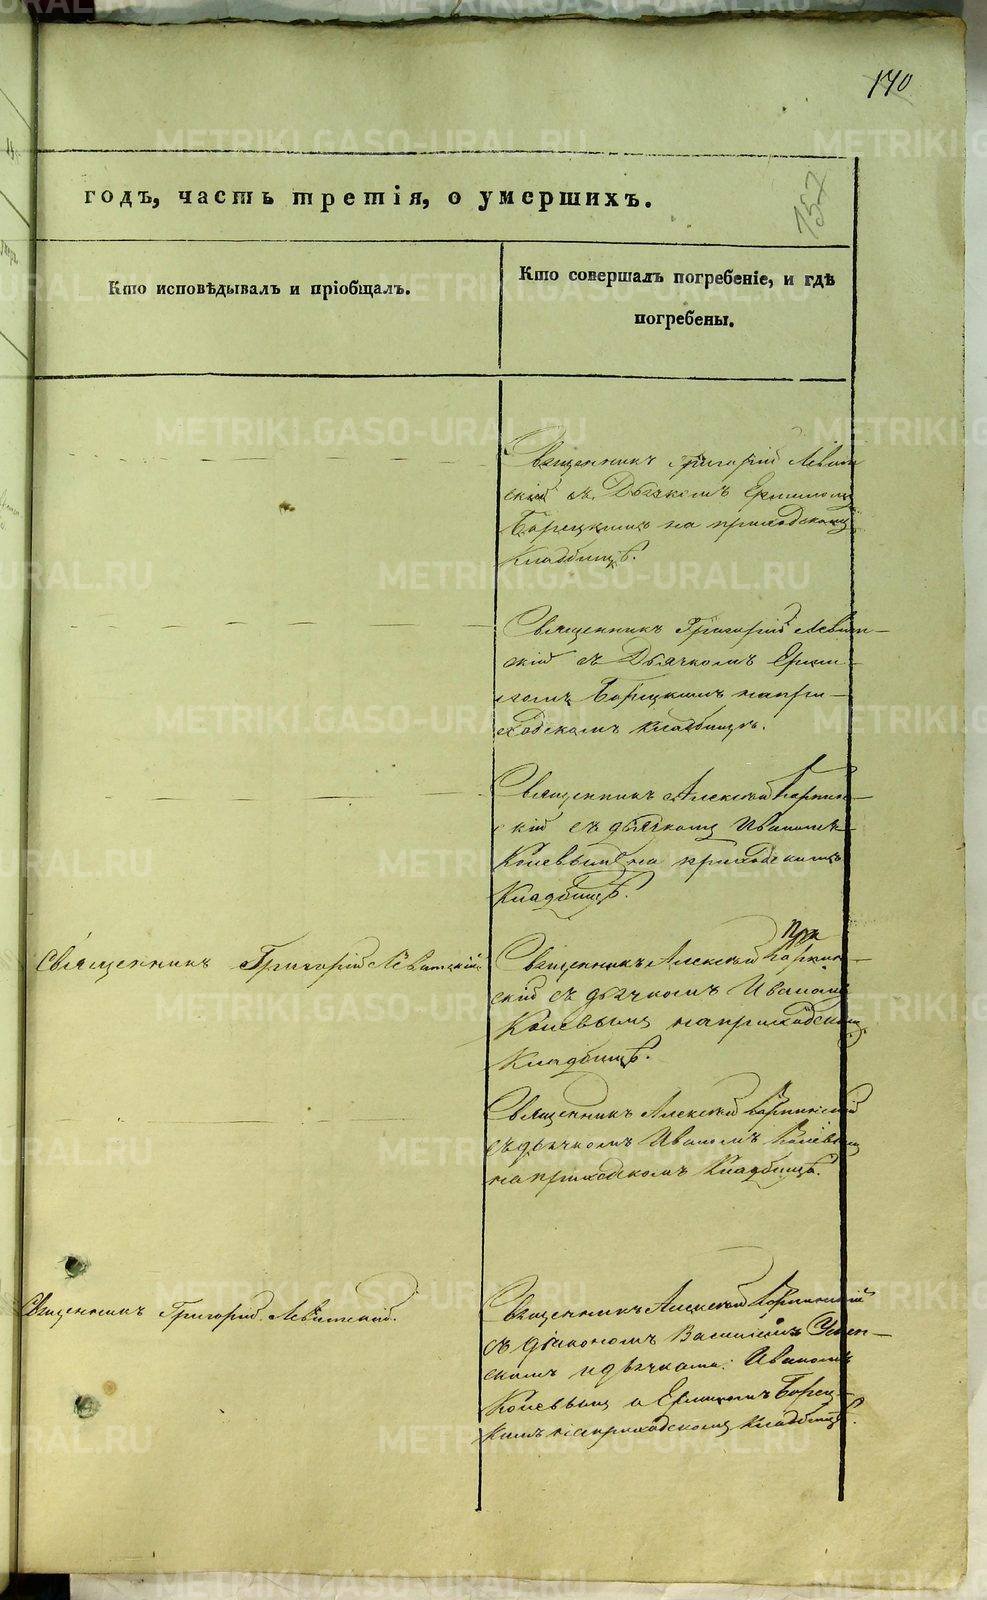 170
157
годъ, часть третія, о умершихъ.
Кто исповѣдывалъ и пріобщалъ.
Кто совершалъ погребеніе, и гдѣ
погребены.
Священникъ Григорій Левит
скій съ Дьячкомъ
Борецкимъ на приходскомъ
Кладбищѣ.
Священникъ Григорій Левит-
скій съ Дьячкомъ Ерми-
ломъ Борецкимъ на при-
ходскомъ кладбищѣ.
Священникъ Алексій Карпин-
скій съ дьячкомъ Иваномъ
Коневымъ на приходскомъ
Кладбищѣ.
Священникъ Григорій Левитскій
Священникъ Алексій Карпин-
скій съ дьячкомъ Иваномъ
Коневымъ на приходскомъ
Кладбищѣ.
Священникъ Алексій Карпинскій
съ дьячкомъ Иваномъ Коневымъ
на приходскомъ Кладбищѣ.
Священникъ Григорій Левитскій.
Священникъ Алексій Карпинскій
съ діакономъ Василіемъ Успен-
скимъ и дьячками: Иваномъ
Коневымъ и Ермиломъ Борец-
кимъ на приходскомъ Кладбищѣ.
METRIKI.GASO-URAL.RU